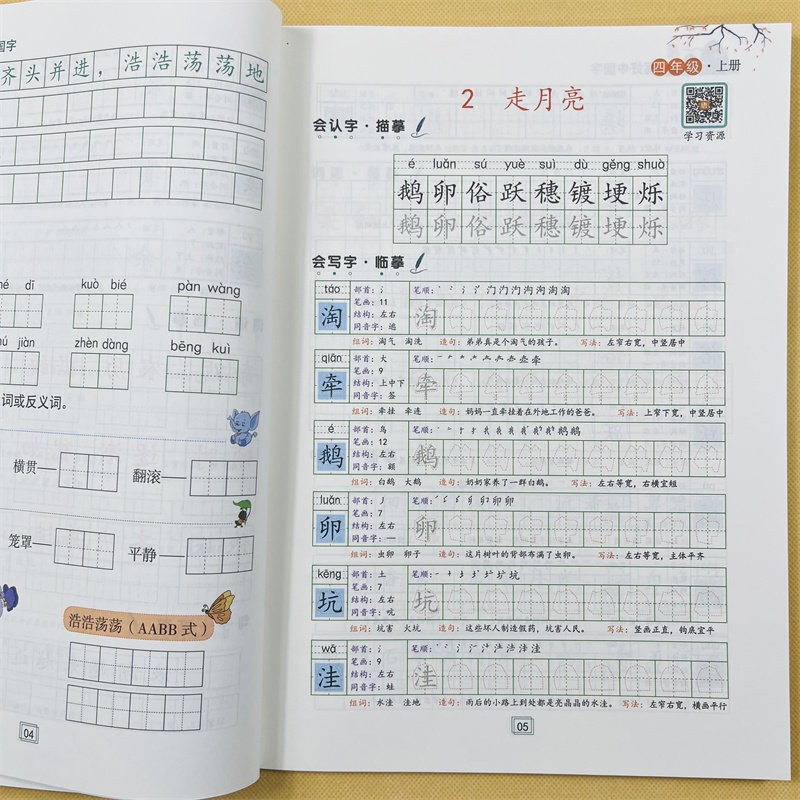 国字
齐头并进，浩浩荡荡地
kuò bié
pàn wàng
zhèn dàng
bēng kuì
词或反义词。
横贯
翻滚
笼罩
平静
浩浩荡荡（AABB 式）
04
四年级·上册
学习资源
2 走月亮
会认字·描摹
é luǎn sú yuè suì dù gěng shuò
鹅 卵 俗 跃 穗 镀 埂 烁
鹅 卵 俗 跃 穗 镀 埂 烁
会写字·临摹
táo
淘
部首：氵
笔画：11
结构：左右
同音字：逃
笔顺：
淘
组词：淘气 淘洗 造句：弟弟真是个淘气的孩子。 写法：左窄右宽，中竖居中
qiān
牵
部首：大
笔画：9
结构：上中下
同音字：签
笔顺：
牵
组词：牵挂 牵连 造句：妈妈一直牵挂着在外地工作的爸爸。 写法：上窄下宽，中竖居中
é
鹅
部首：鸟
笔画：12
结构：左右
同音字：额
笔顺：
鹅
组词：白鹅 大鹅 造句：奶奶家养了一群白鹅。 写法：左右等宽，右横宜短
luǎn
卵
部首：丿
笔画：7
结构：左右
同音字：—
笔顺：
卵
组词：虫卵 卵子 造句：这片树叶的背部布满了虫卵。 写法：左右等宽，主体平齐
kēng
坑
部首：土
笔画：7
结构：左右
同音字：吭
笔顺：
坑
组词：坑害 火坑 造句：这些坏人制造假药，坑害人民。 写法：竖画正直，钩底宜平
wā
洼
部首：氵
笔画：9
结构：左右
同音字：蛙
笔顺：
洼
组词：水洼 洼地 造句：雨后的小路上到处都是亮晶晶的水洼。 写法：左窄右宽，横画平行
05